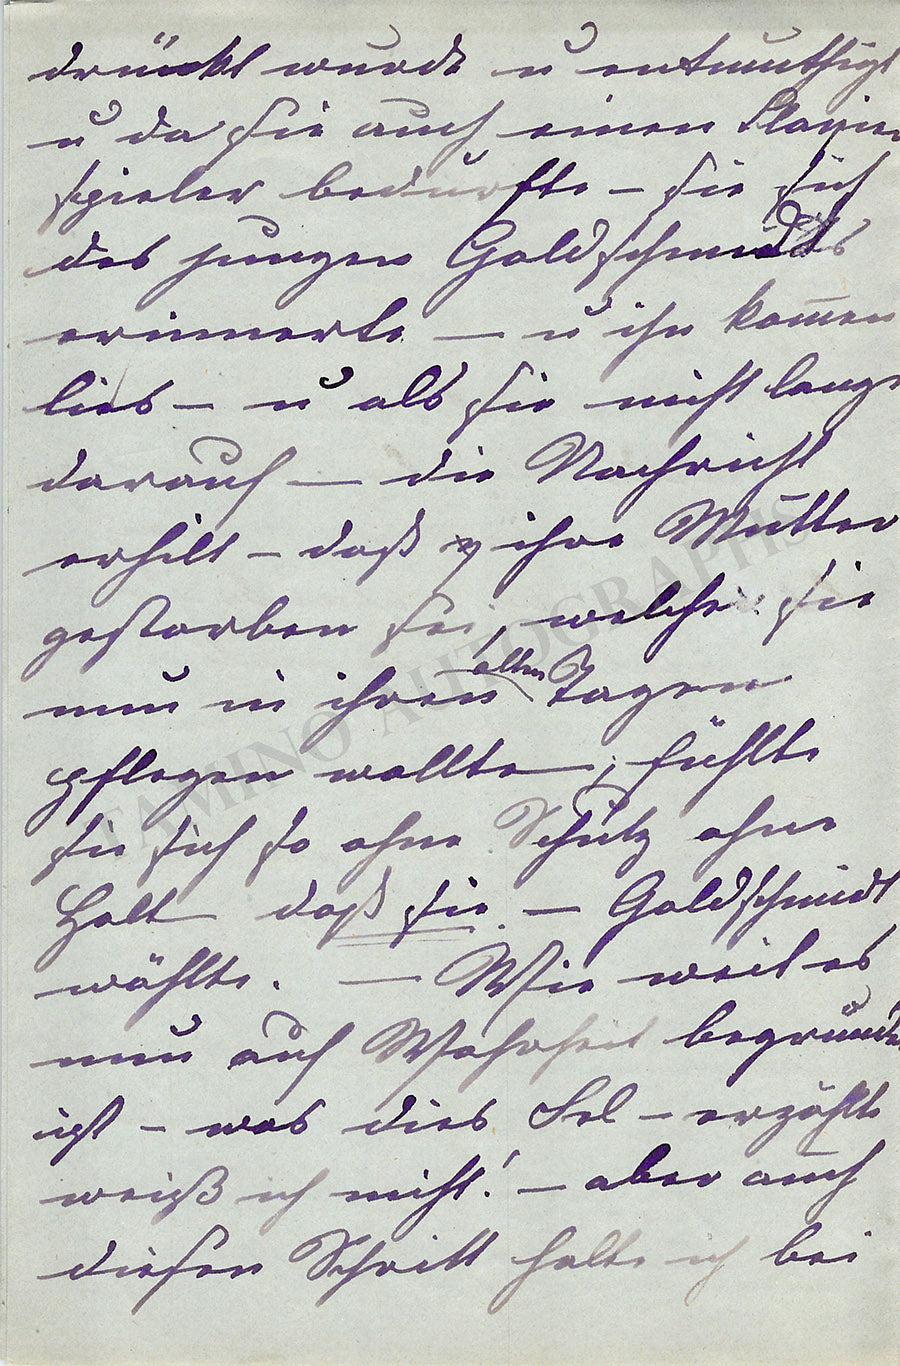 drückt wurde u entmuthigt
u da sie auch einen Klavier
spieler bedurfte – sie sich
des jungen Goldschmidts
erinnerte — u ihn kommen
lies – u als sie nicht lange
darauf — die Nachricht
erhilt – daß ihre Mutter
gestorben sei, welche sie
nun in ihren alten Tagen
pflegen wollte, fühlte
sie sich so ohne Schutz ohne
Halt daß sie – Goldschmidt
wählte. — Wie weil es
nun auf Wahrheit begründet
ist – was dies Frl – erzählte
weiß ich nicht! – aber auch
diesen Schritt halte ich bei
TAMINO AUTOGRAPHS